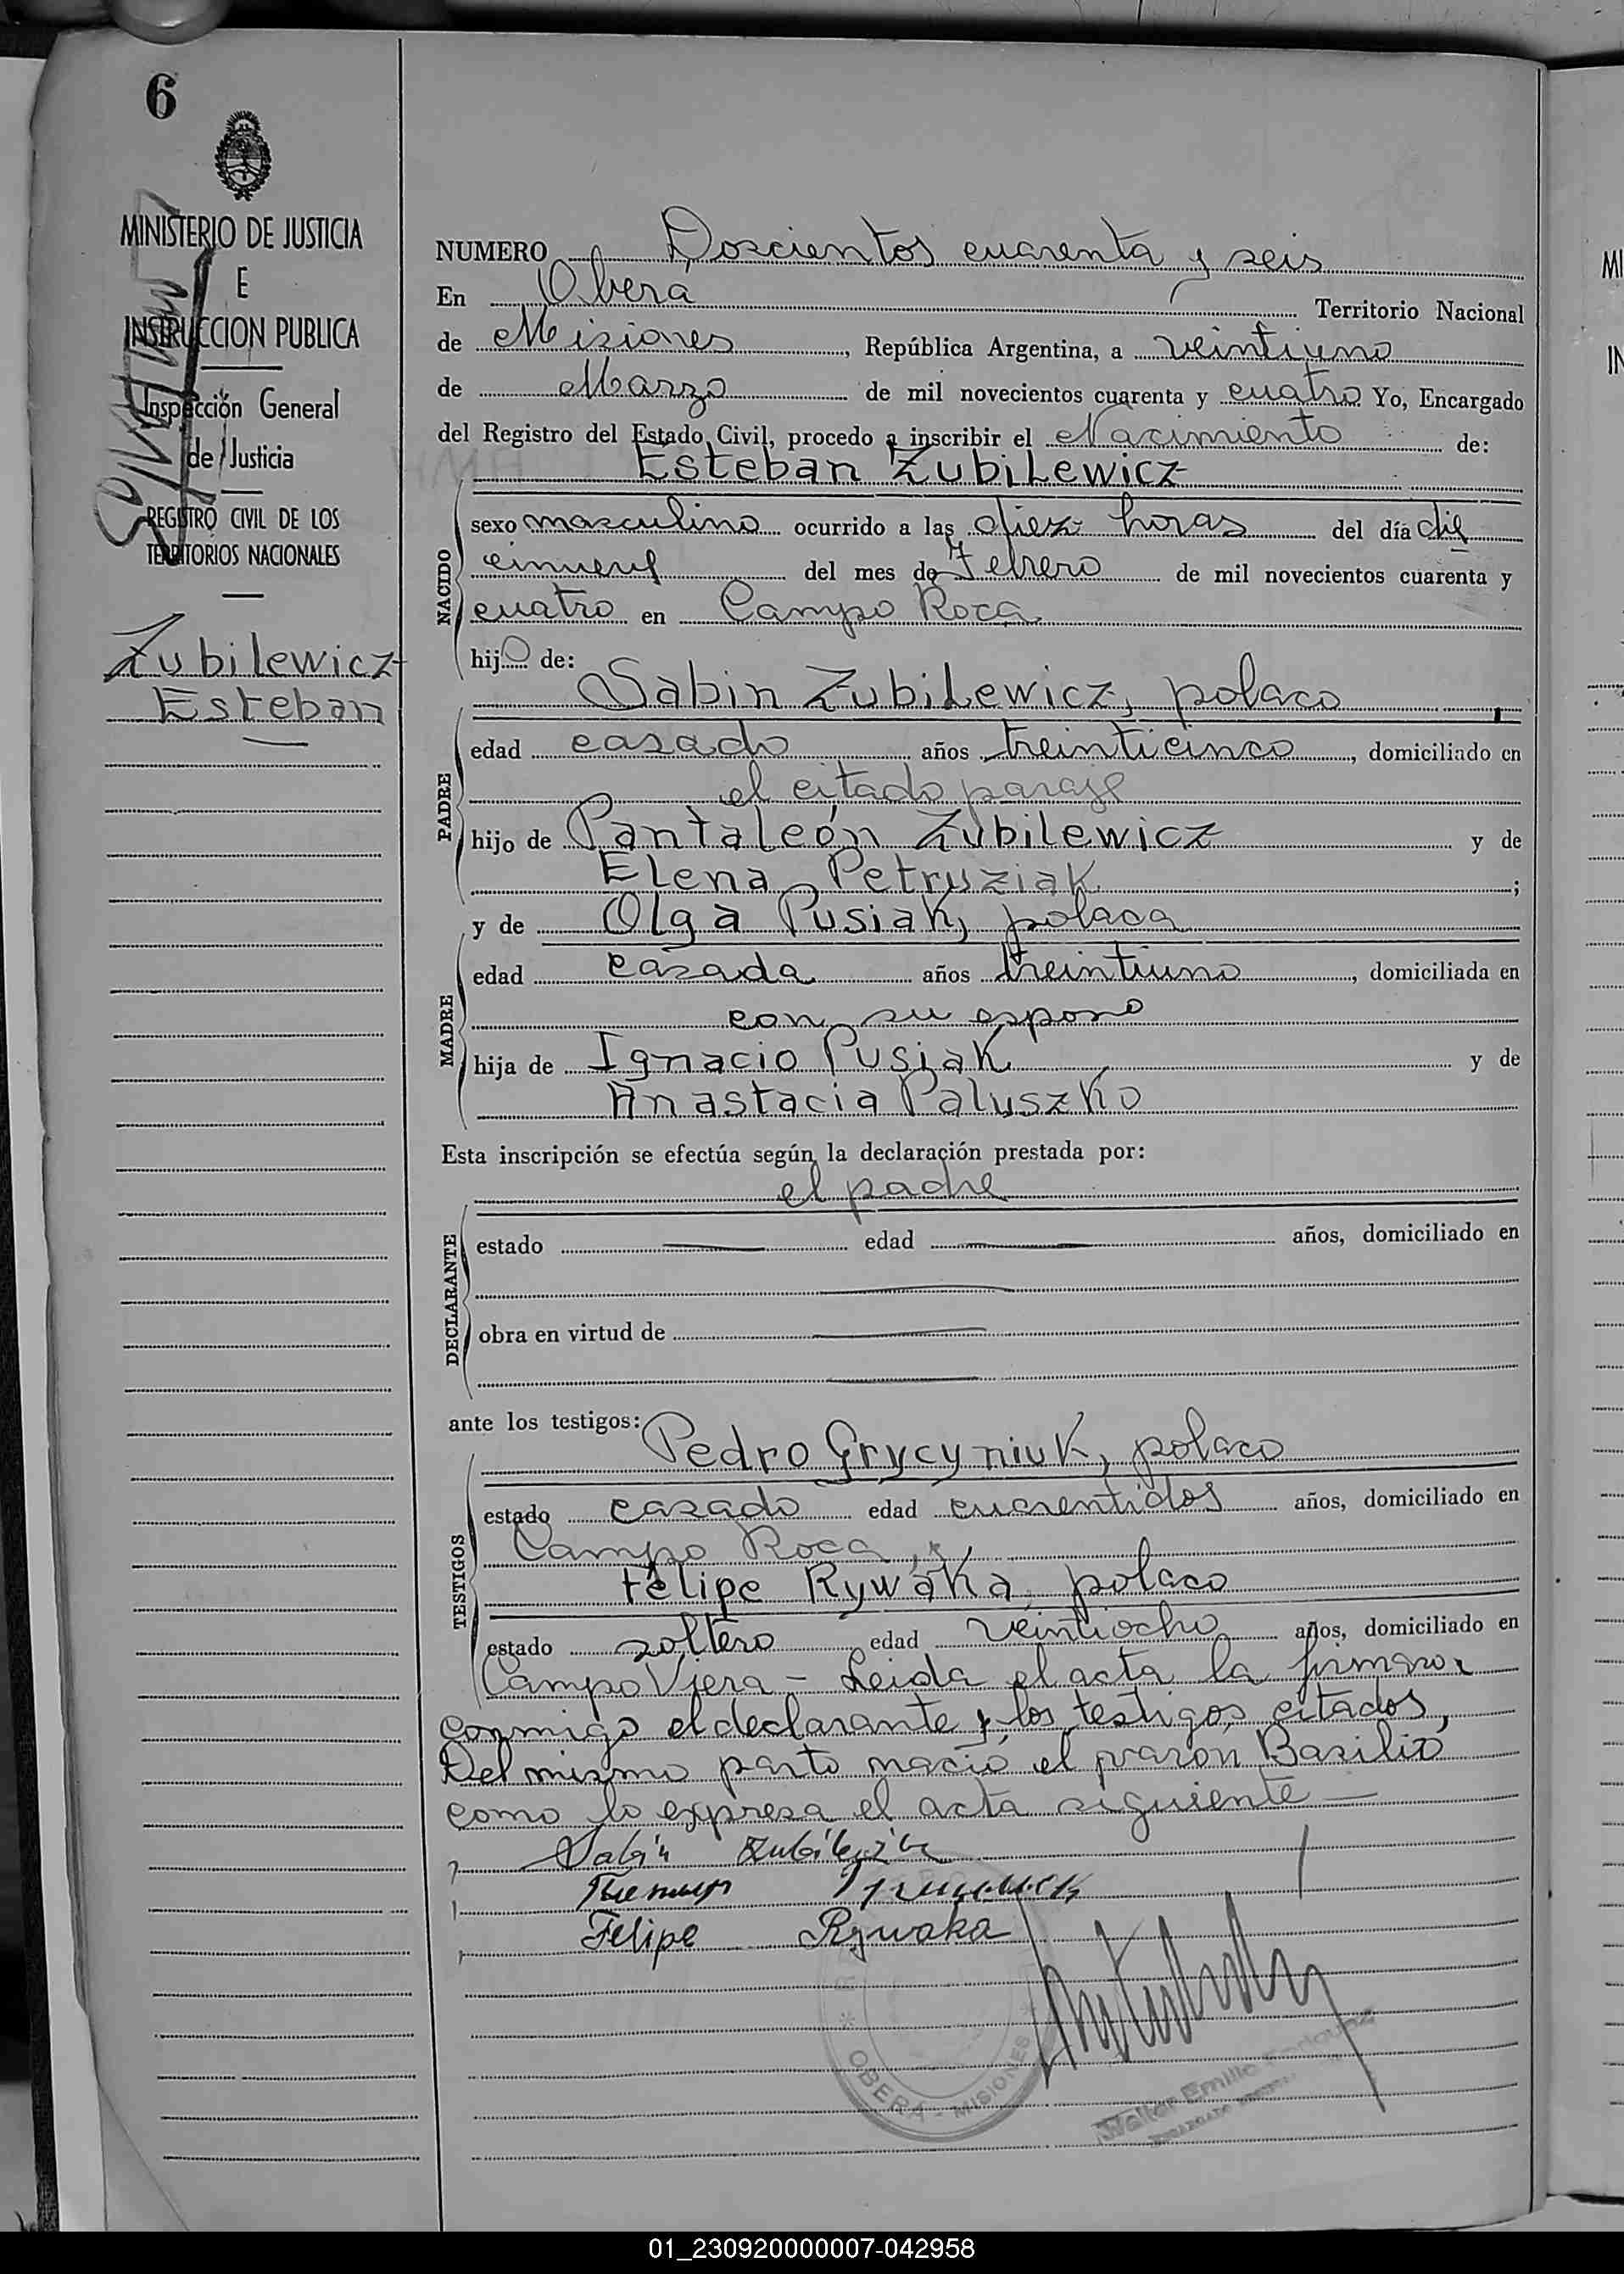 6
MINISTERIO DE JUSTICIA
E
INSTRUCCION PUBLICA
Inspección General
de Justicia
REGISTRO CIVIL DE LOS
TERRITORIOS NACIONALES
Zubilewicz
Esteban
NUMERO Doscientos cuarenta y seis
En Oberá Territorio Nacional
de Misiones, República Argentina, a veintiuno
de Marzo de mil novecientos cuarenta y cuatro Yo, Encargado
del Registro del Estado Civil, procedo a inscribir el Nacimiento de:
Esteban Zubilewicz
NACIDO
sexo masculino ocurrido a las diez horas del día die
cinueve del mes de Febrero de mil novecientos cuarenta y
cuatro en Campo Roca
hijo de:
Sabin Zubilewicz, polaco,
PADRE
edad casado años treinticinco, domiciliado en
el citado paraje
hijo de Pantaleón Zubilewicz y de
Elena Petruziak;
y de Olga Pusiak, polaca
MADRE
edad casada años treintiuno, domiciliada en
con su esposo
hija de Ignacio Pusiak y de
Anastacia Paluszko
Esta inscripción se efectúa según la declaración prestada por:
el padre
DECLARANTE
estado edad años, domiciliado en
obra en virtud de
ante los testigos:
Pedro Grycyniuk, polaco
TESTIGOS
estado casado edad cuarentidos años, domiciliado en
Campo Roca, y
Felipe Rywaka polaco
estado soltero edad veintiocho años, domiciliado en
Campo Viera - Leida el acta la firmaron
conmigo el declarante y los testigos citados,
Del mismo parto nació el varon Basilio
como lo expresa el acta siguiente —
Sabin
Felipe Rywaka
OBERÁ - MISIONES
Walter Emilio
01_230920000007-042958